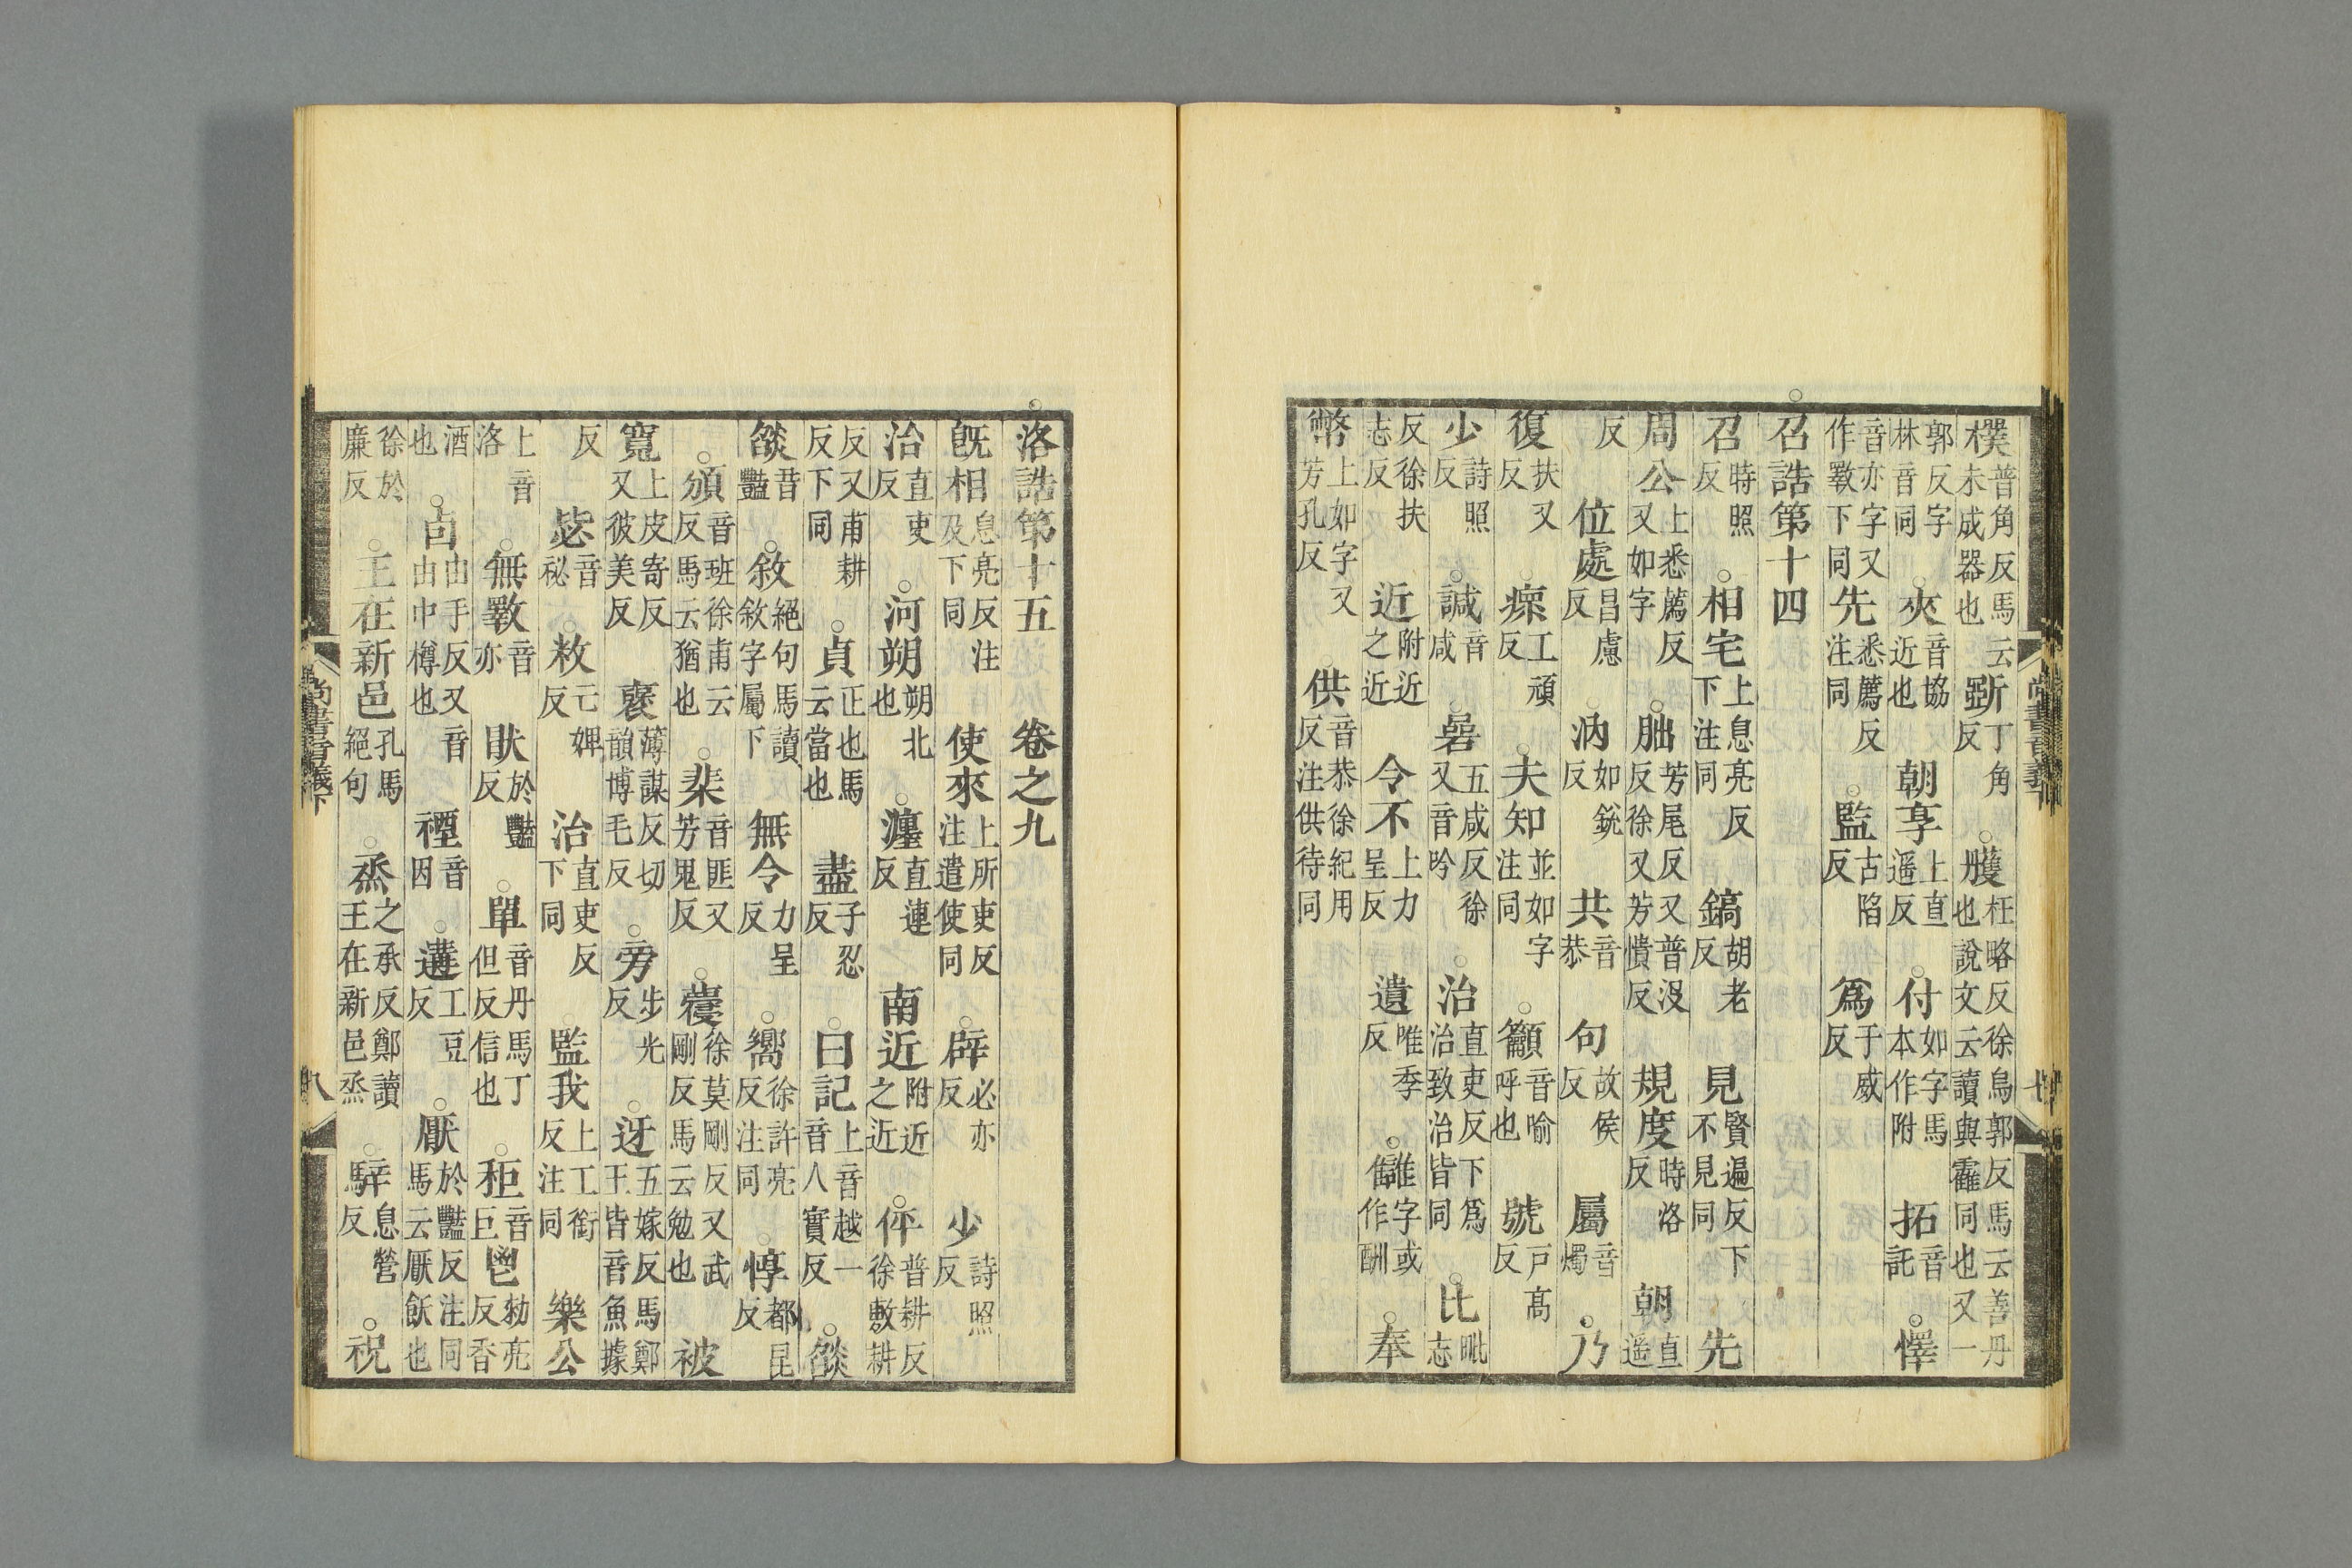 樸普角反馬云未成器也斲丁角反○雘枉略反徐烏郭反馬云善丹也說文云讀與霍同也又一
郭反字林音同○夾音協近也朝享上直遥反○付如字馬本作附拓音託○懌
音亦字又作斁下同先悉薦反注同○監古陷反爲于威反
○召誥第十四
召特照反○相宅上息亮反下注同鎬胡老反見賢遍反下不見同先
周公上悉薦反又如字○朏芳尾反又普沒反徐又芳憒反規度時洛反朝直遥
反位處昌慮反汭如銳反共音恭句故侯反屬音燭○乃
復扶又反瘝工頑反○夫知並如字注同○籲音喻呼也號戶高反
少詩照反○諴音咸碞五咸反徐又音吟○治直吏反下爲治致治皆同○比毗志
反徐扶志反近附近之近令不上力呈反遺唯季反○讎字或作酬○奉
幣上如字又芳孔反供音恭徐紀用反注供待同
尚書音義下
七
○洛誥第十五　卷之九
旣相息亮反注及下同使來上所吏反注遣使同○辟必亦反少詩照反
治直吏反○河朔朔北也○瀍直連反南近附近之近○伻普耕反徐敷耕
反又甫耕反下同○貞正也馬云當也盡子忍反○曰記上音越一音人實反○燄
燄音豔○敘絕句馬讀敘字屬下無令力呈反○嚮徐許亮反注同○惇都昆反
○頒音班徐甫云反馬云猶也○棐音匪又芳鬼反○㝱徐莫剛反又武剛反馬云勉也被
寬上皮寄反又彼美反裒薄謀反切韻博毛反○旁步光反○迓五嫁反馬鄭王皆音魚據
反毖音秘○敉亡婢反治直吏反下同○監我上工銜反注同樂公
上音洛○無斁音亦㫟於豔反○單音丹馬丁但反信也○秬音巨鬯勑亮反香
酒也○卣由手反又音由中樽也禋音因○遘工豆反○厭於豔反注同馬云厭飫也
徐於廉反○王在新邑孔馬絕句○烝之承反鄭讀王在新邑烝○騂息營反○祝
尚書音義下
八